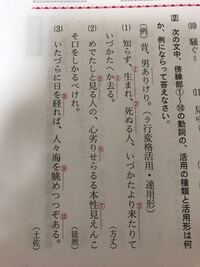 ⑽ 騒ぐ＝
② 次の文中、傍線部①～⑩の動詞の、活用の種類と活用形は何
か、例にならって答えなさい。
（例）昔、男ありけり。（ラ行変格活用・連用形）
⑴ 知らず、生まれ、死ぬる人、いづかたより来たりて
いづかたへか去る。（方丈）
⑵ めでたしと見る人の、心劣りせらるる本性見えんこ
そ口をしかるべけれ。（徒然）
⑶ いたづらに日を経れば、人々海を眺めつつぞある。
（土佐）
① ② ③ ④ ⑤ ⑥ ⑦ ⑧ ⑨ ⑩